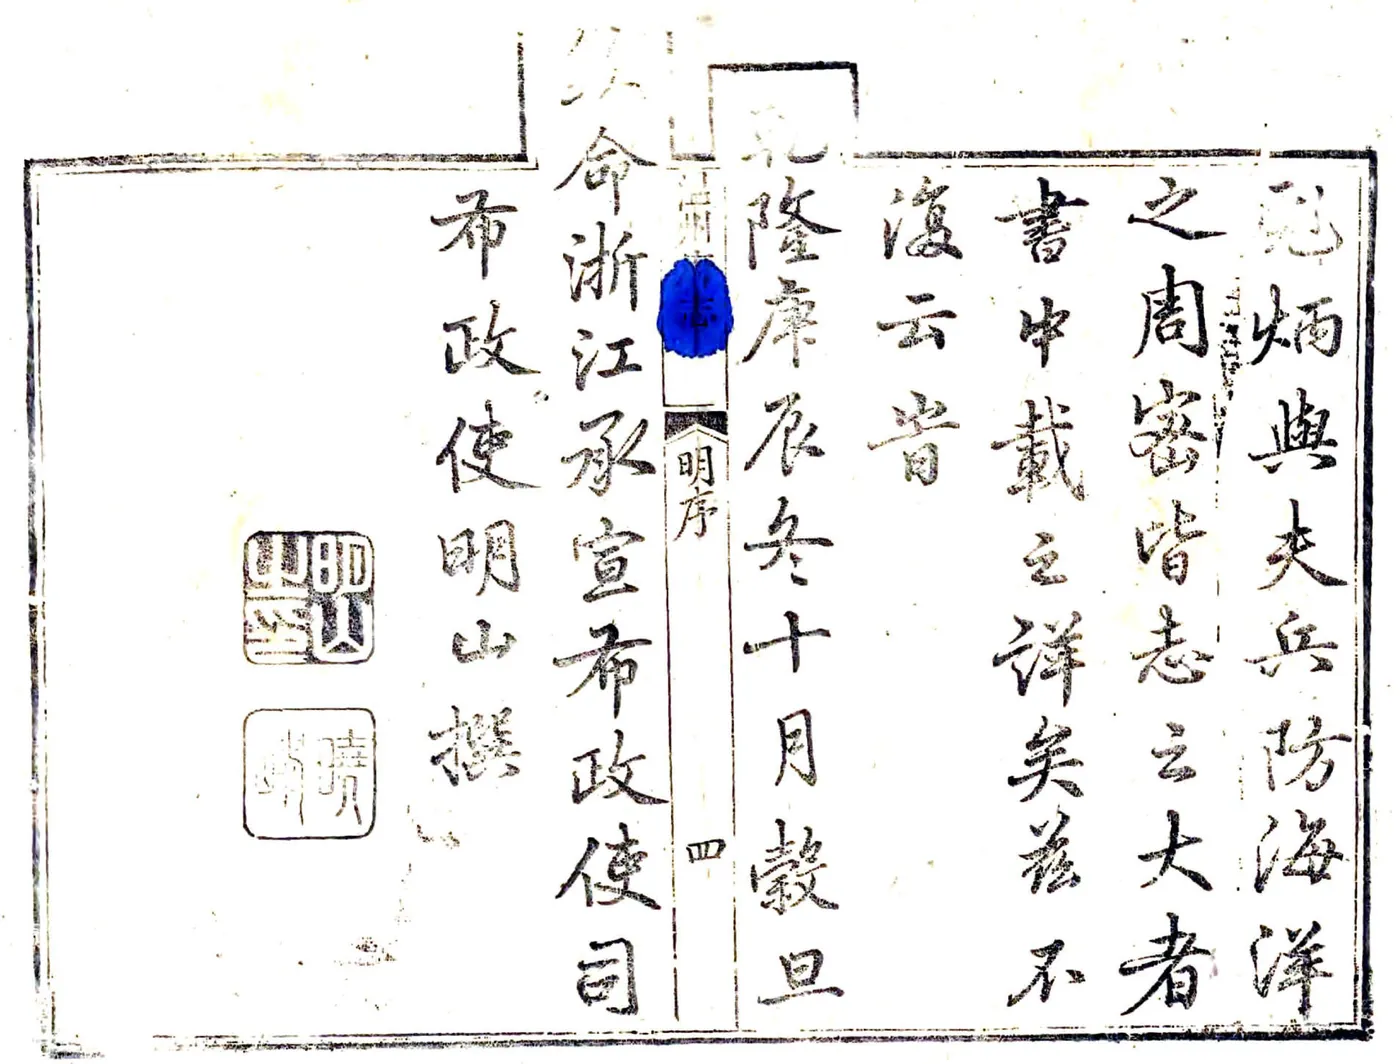 炳與夫兵防海洋
之周密皆志之大者
書中載之詳矣茲不
復云時
乾隆庚辰冬十月穀旦
州志
明序
四
命浙江承宣布政使司
布政使明山撰
明山之印
曉